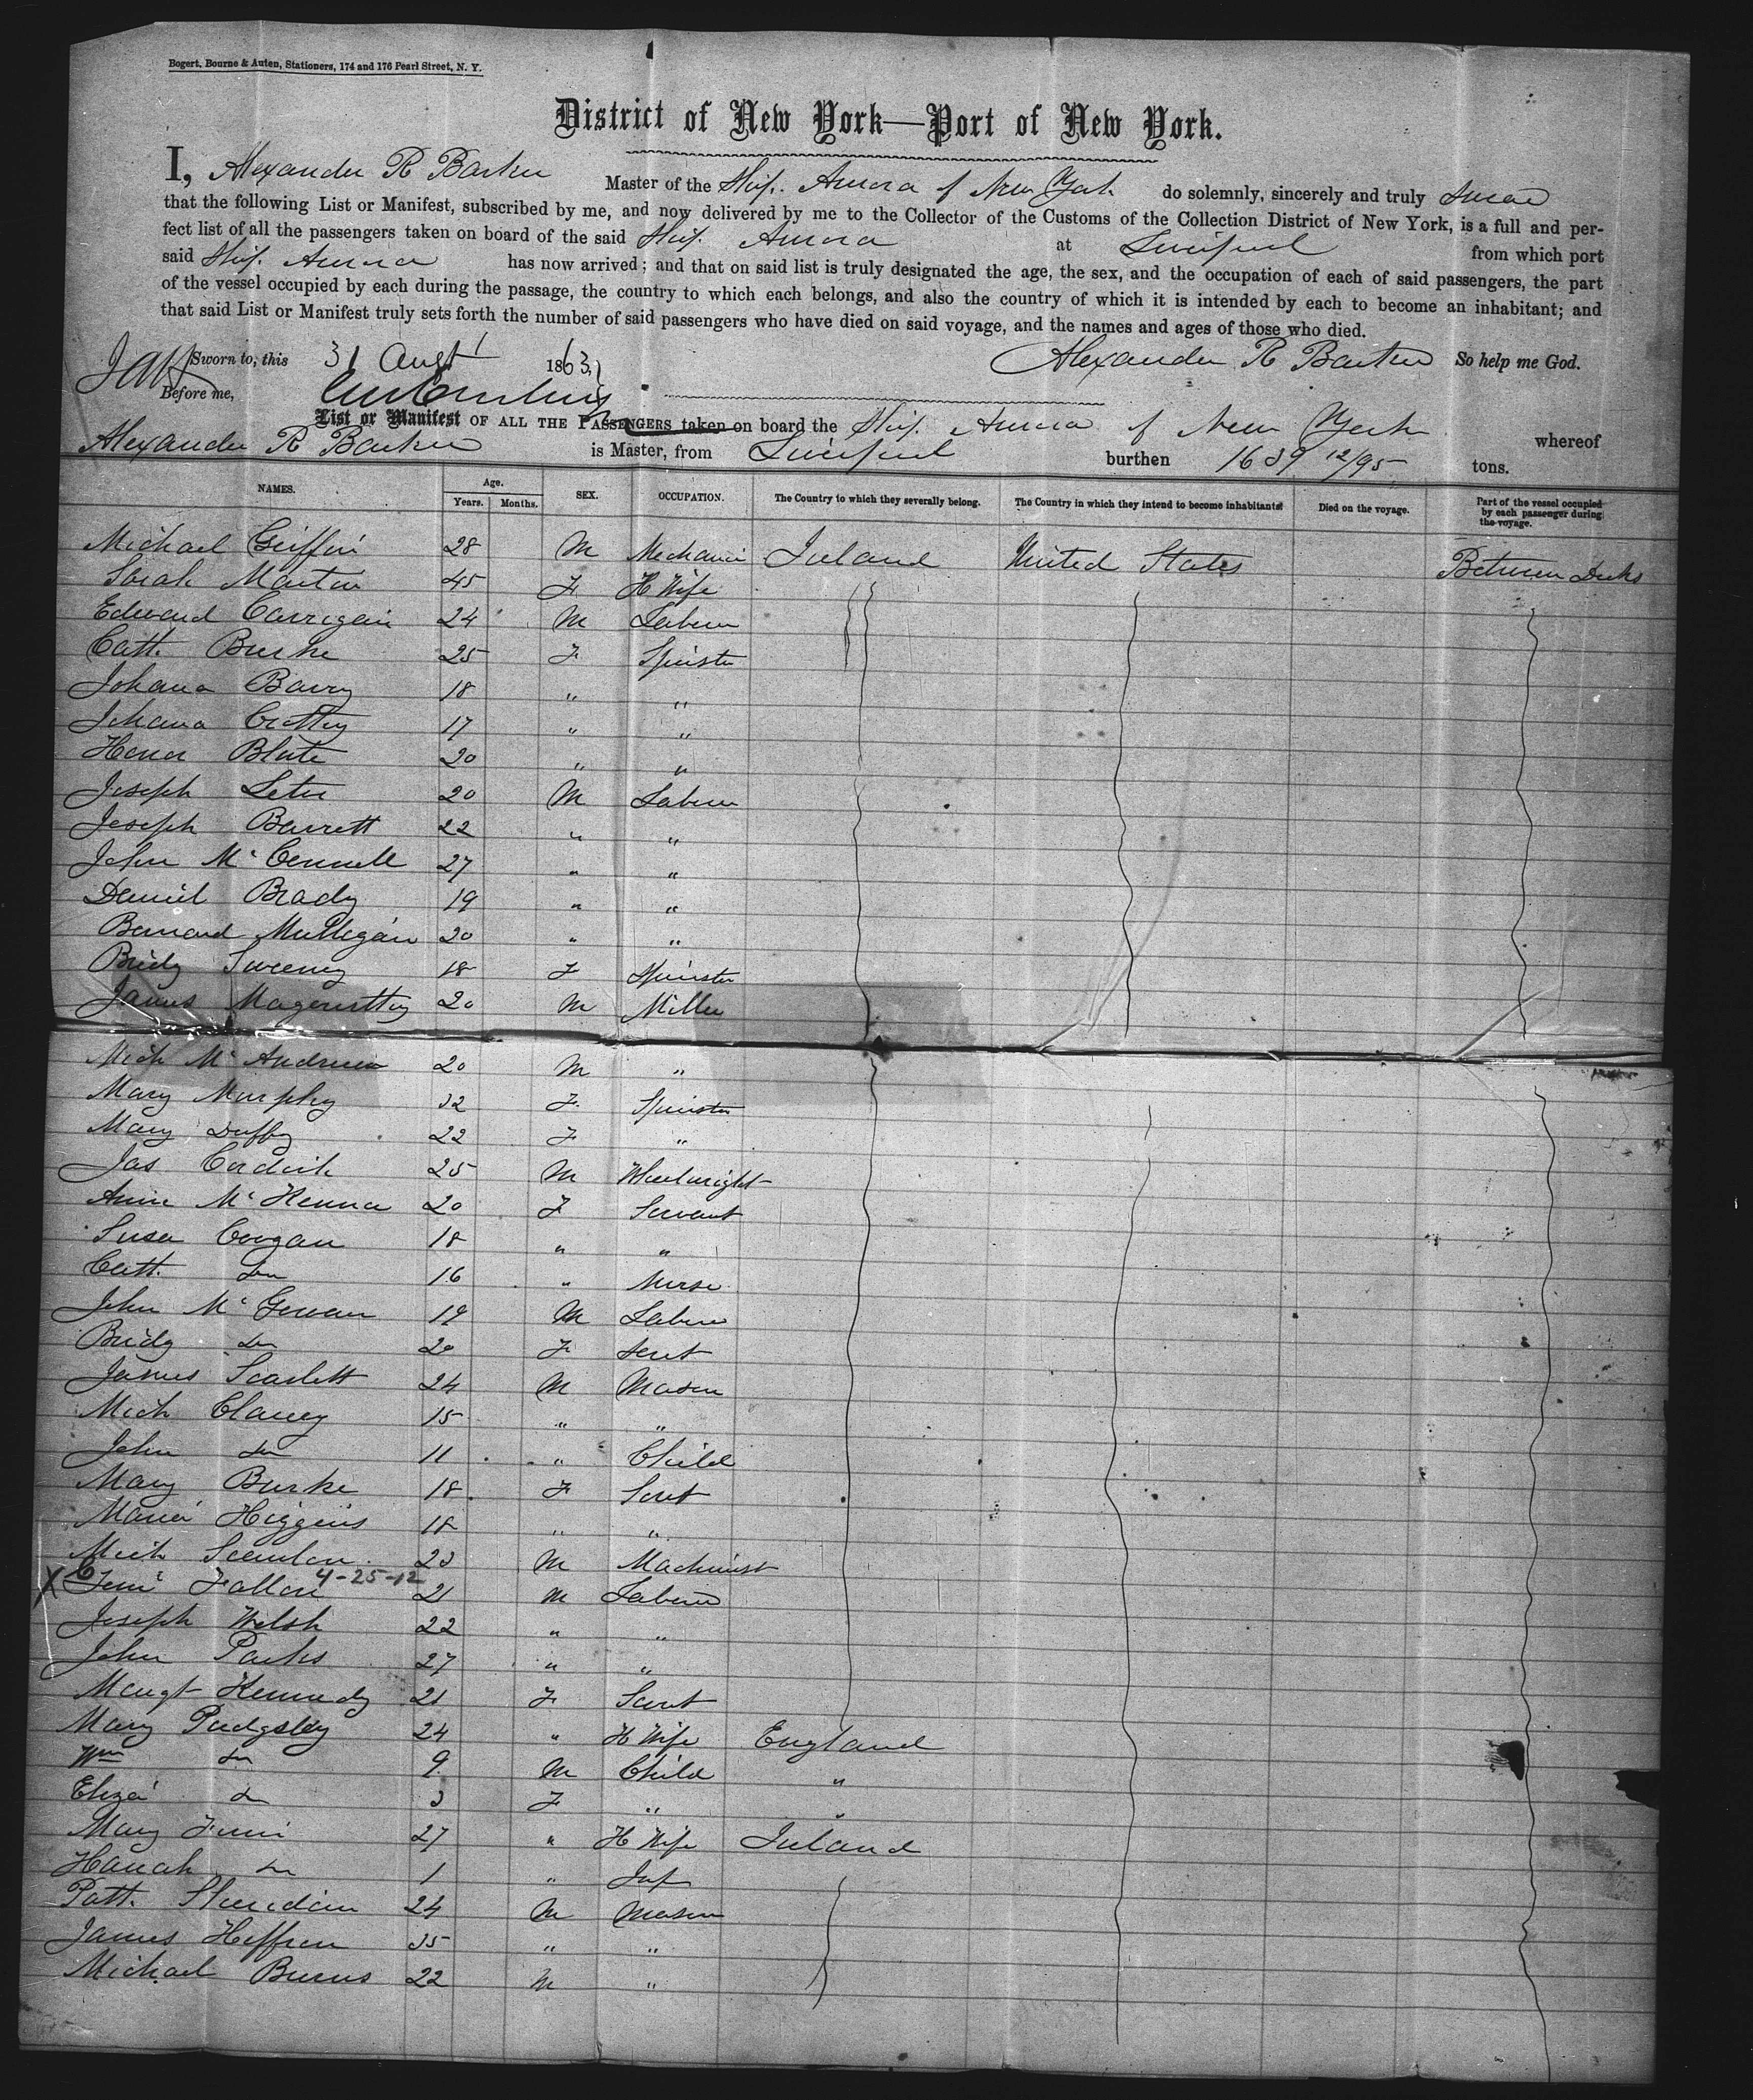 Bogert, Bourne & Auten, Stationers, 174 and 176 Pearl Street, N. Y.
District of New York—Port of New York.
I, Alexander R Barker Master of the Ship Aurora of New York do solemnly, sincerely and truly swear
that the following List or Manifest, subscribed by me, and now delivered by me to the Collector of the Customs of the Collection District of New York, is a full and per-
fect list of all the passengers taken on board of the said Ship Aurora at Liverpool from which port
said Ship Aurora has now arrived; and that on said list is truly designated the age, the sex, and the occupation of each of said passengers, the part
of the vessel occupied by each during the passage, the country to which each belongs, and also the country of which it is intended by each to become an inhabitant; and
that said List or Manifest truly sets forth the number of said passengers who have died on said voyage, and the names and ages of those who died.
Sworn to, this 31 Augt 1863 Alexander R Barker So help me God.
Before me,
List or Manifest OF ALL THE PASSENGERS taken on board the Ship Aurora of New York whereof
Alexander R Barker is Master, from Liverpool burthen 1639 12/95 tons.
NAMES. Age. Years. Months. SEX. OCCUPATION. The Country to which they severally belong. The Country in which they intend to become inhabitants Died on the voyage. Part of the vessel occupied by each passenger during the voyage.
Michael Griffin 28 M Mechanic Ireland United States Between Decks
Sarah Martin 45 F H Wife
Edward Corrigan 24 M Laborer
Cath. Burke 25 F Spinster
Johana Barry 18 " "
Johana 17 " "
Honor Blute 20 " "
Joseph 20 M Laborer
Joseph Barrett 22 " "
John McConnell 27 " "
Daniel Brady 19 " "
Bernard Mullegan 20 " "
Bridg Sweeney 18 F Spinster
James 20 M Miller
Mich McAndrew 20 M "
Mary Murphy 32 F Spinster
Mary Duffy 22 F "
Jas 25 M Wheelwright
Anne McKenna 20 F Servant
Susa Coogan 18 " "
Cath. do 16 " Nurse
John McGowan 19 M Laborer
Bridg do 20 F Servt
James Scarlett 24 M Mason
Mich Clancy 15 " "
John do 11 " Child
Mary Burke 18 F Servt
Maria Higgins 18 " "
Mich Scanlon 23 M Machinist
X Fallon 4-25-12 21 M Laborer
Joseph Welsh 22 " "
John Parks 27 " "
Margt Kennedy 21 F Servt
Mary Pudgsley 24 " H Wife England
Wm do 9 M Child "
Eliza do 3 F " "
Mary 27 " H Wife Ireland
Hanah do 1 " Inf
Patt. Sheridan 24 M Mason
James Heffren 35 " "
Michael Burns 22 M "